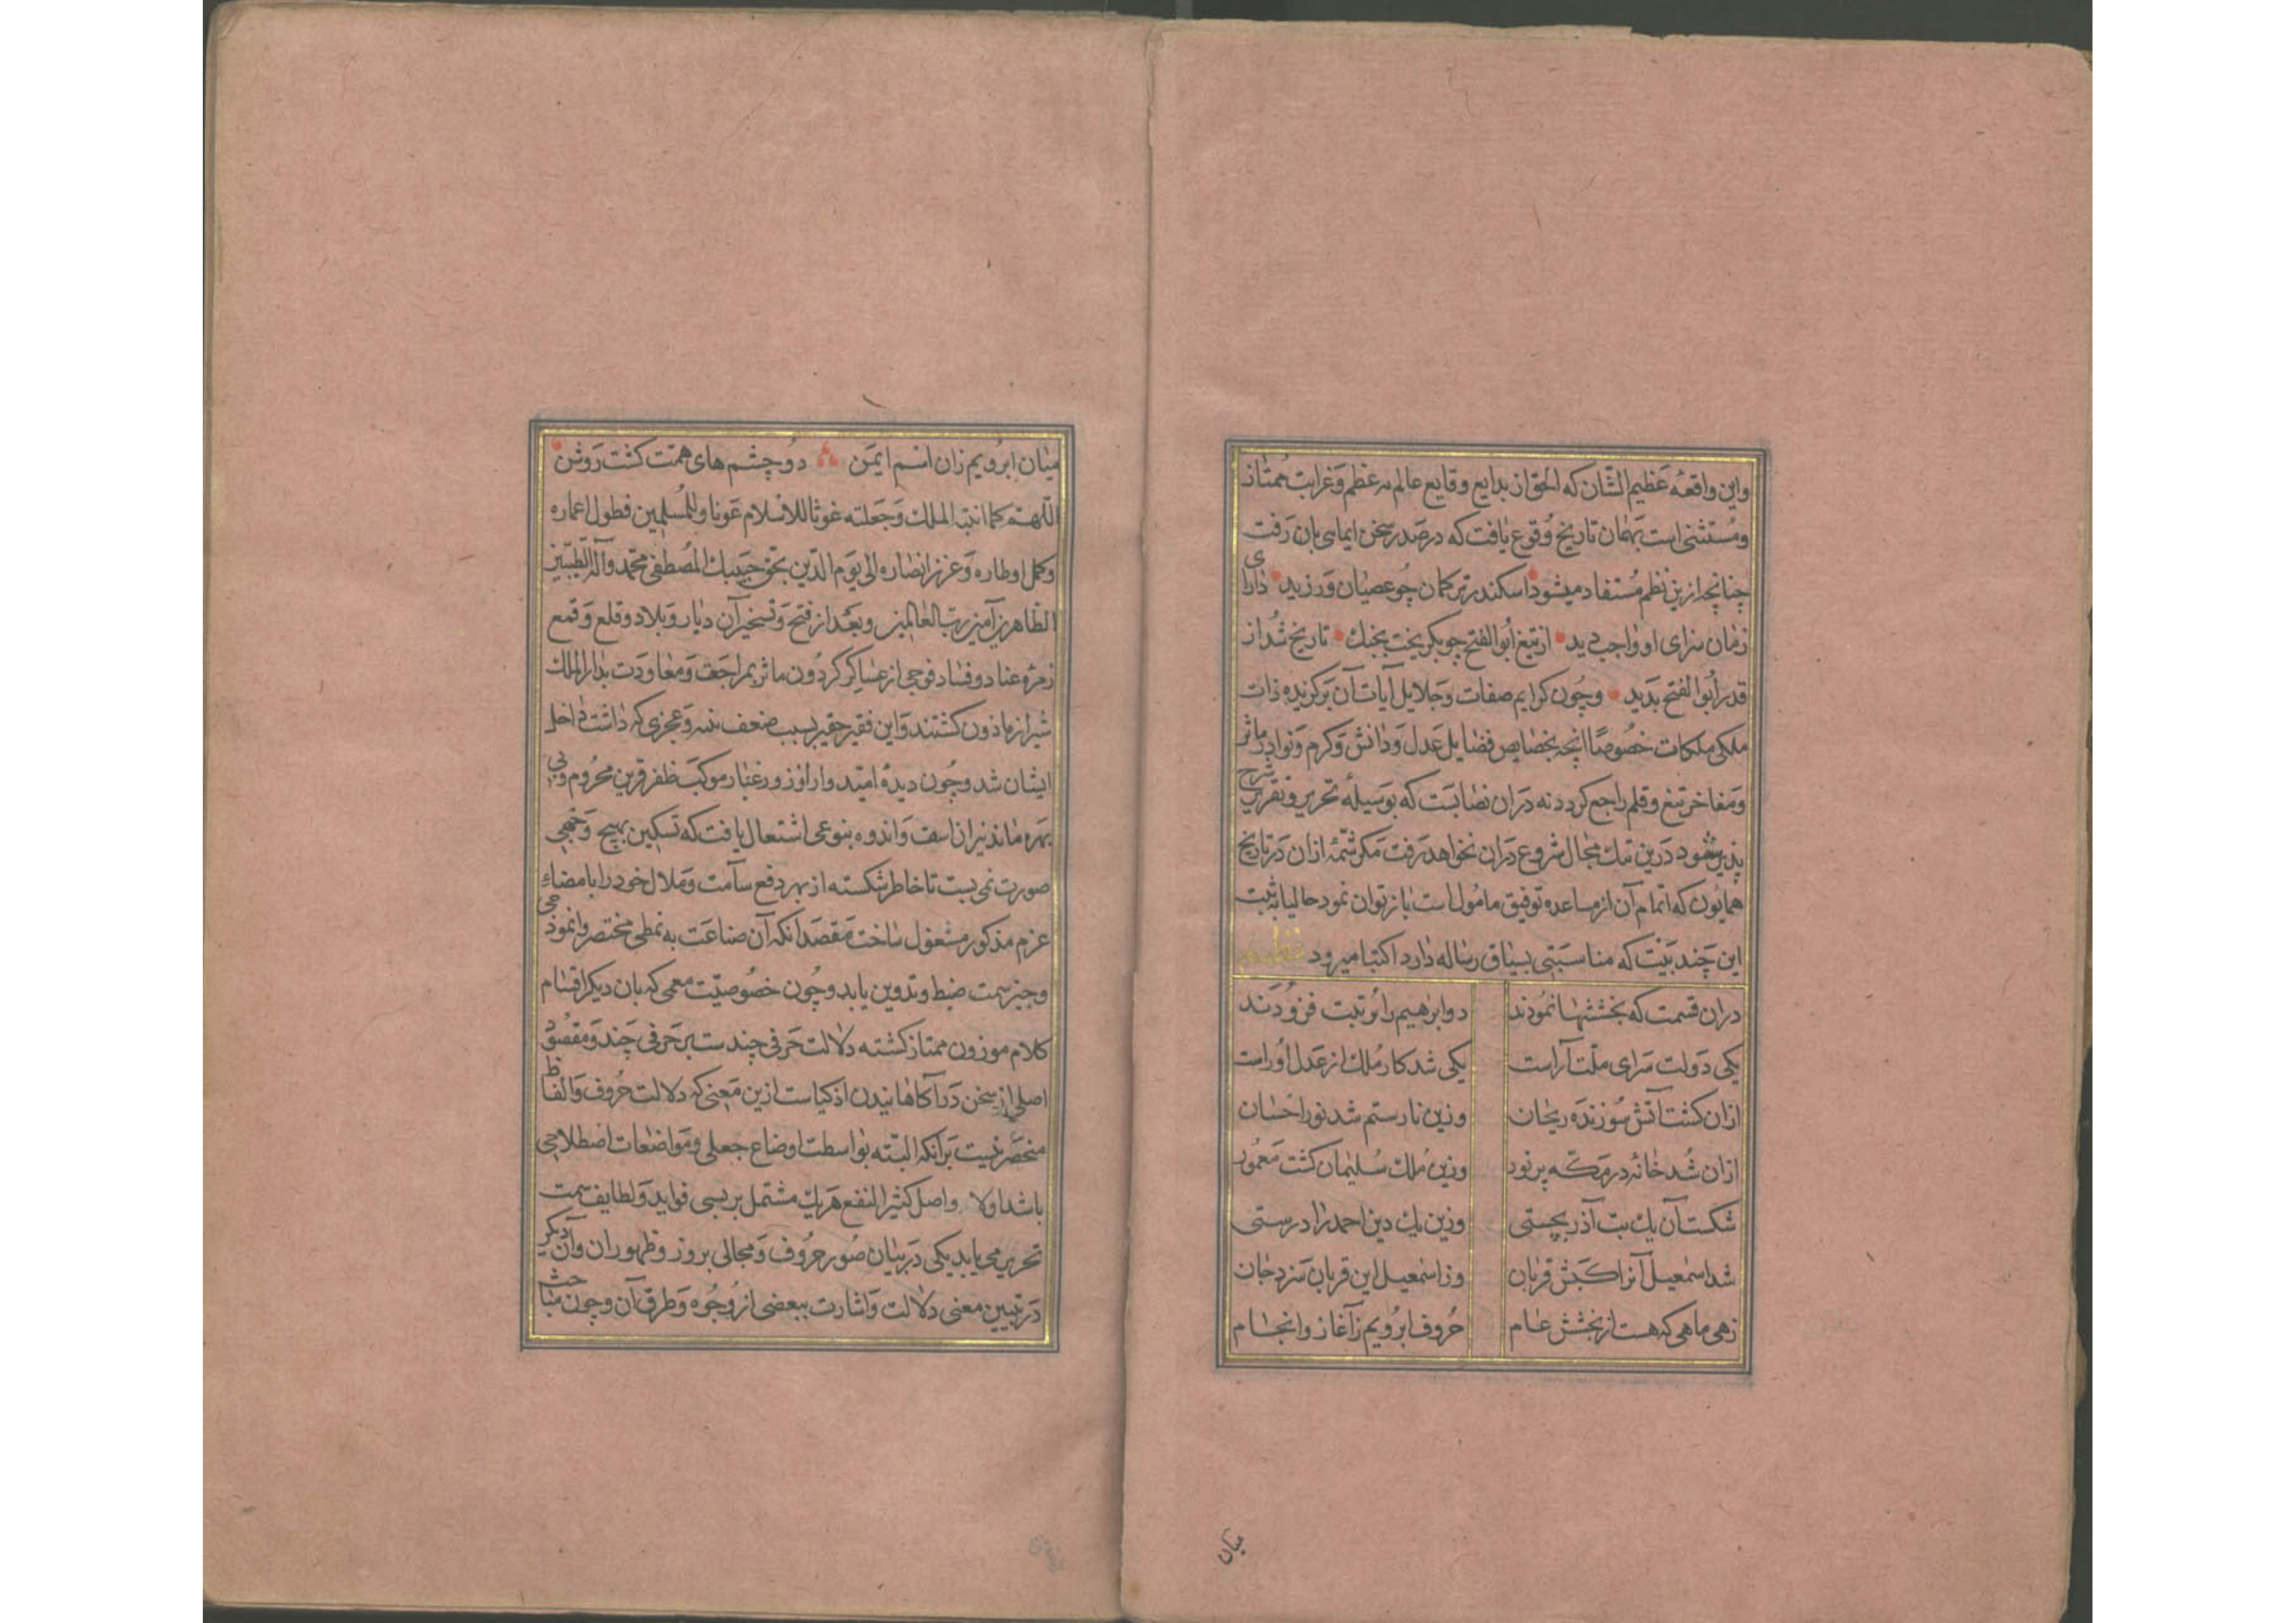 واین واقعهٔ عَظیم الشّان که الحق از بدایع وقایع عالم بعظم وَغرابت ممتاز
ومُستثنی است بهمان تاریخ وُقوع یافت که درصدر سخن ایمایی بان رَفت
چنانچه ازین نظم مُستفاد میشود اسکندر ترکمان چو عصیان وَرزید دارای
زمان سزای او واجب دید ازتیغ اَبوالفتح چو بکریخت بجنك تاریخ شُد از
قدر اَبوالفتح بَدید وچُون کرایم صفات وَجلایل آیات آن برکزیده ذات
ملکی ملکات خصُوصًا انچه بخصایص فضایل عَدل وَدانش وَکرم وَنوادر مآثر
وَمفاخر تیغ وقلم راجع کردد نه دَران نصابَست که بوَسیلهٔ تحریر وتقریر شرح
پذیر شود دَرین تنك مجال شروع دَران نخواهد رَفت مَکر شمّهٔ ازان دَر تاریخ
همایُون که اتمام آن از مساعده توفیق مامُول است باز توان نمود حالیا بثبت
این چَند بَیت که مناسبَتی بسیاق رساله دارد اکتفا میرود نظم
دران قسمت که بخششها نمُودند دو ابرٰهیم را رُتبت فزوُدَند
یکی دَولت سَرای ملّت آراست یکی شد کار مُلك از عَدل اوُ راست
ازان کشت آتش سُوزندَه ریحان وزین نار ستم شد نور احسان
ازان شُد خانه در مَکّه پرنور وزین مُلك سُلیمان کشت مَعمُور
شکست آن یك بت آذر بچستی وزین یك دین احمد را درستی
شد اسمٰعیل آنرا کبش قربان وز اسمٰعیل این قربان سَزد جان
زهی ماهی که هست از بخشش عام حُروف ابرُویم زآغاز وانجام
میان
میان ابرُویم زان اسم ایمَن دوُ چشم های همّت کشت رَوشن
اللّهمّ کما اتیته الملك وَجَعلته غوثا للاسلام عَونا وللمُسلمین فطول اعماره
وکمل اوطاره وَعزز انصاره الی یَوم الدّین بحق حَبیبك المُصطفی محمّد وآله الطّیّبین
الطّاهرین آمین ربّ العالمین وبعَد از فتح وَتسخیر آن دیار وَبلاد وقلع وَقمع
زمرهٔ عناد وفساد فوجی از عسٰاکر کردُون ماثر بمراجَعت وَمعاودَت بدار الملك
شیراز ماذون کشتند وَاین فقیر حقیر بسبب ضعف بنیه وَعجزی که داشت داخل
ایشان شد وچُون دیدهٔ امیّد وار از ذرور غبار موکبَ ظفر قرین محرُوم وبی
بهره ماند نیران اسف وَاندوه بنوعی اشتعال یافت که تسکین بهیچ وَجهی
صورت نمی بست تا خاطر شکسته از بهر دفع سآمت وملال خود را بامضاء
عزم مذکور مشغول ساخت مَقصَد انکه آن صناعَت به نمطی مختصر وانموذجی
وجیز سمت ضبط وتدوین یابد وچُون خصُوصیّت معمی که بان از دیکر اقسام
کلام موزون ممتاز کشته دلالت حَرفی چند ست بر حَرفی چَند وَمقصُود
اصلی از سخن دَر آکاهانیدن اذکیاست ازین مَعنی که دلالت حُروف وَالفاظ
منحصَر نیست بَر آنکه البتّه بوَاسطت اوضاع جعلی ومَواضعات اصطلاحی
باشد اولا واصل کثیر النفع هَر یك مشتمل بر بسی فواید وَلطایف سمت
تحریر می یابد یکی دَر بیان صُور حرُوف وَمجالی بروز وظهور ان وآن دیکر
دَر تبیین معنی دلالت وَاشارت ببعضی از وُجُوه وَطرق آن وچون مباحث